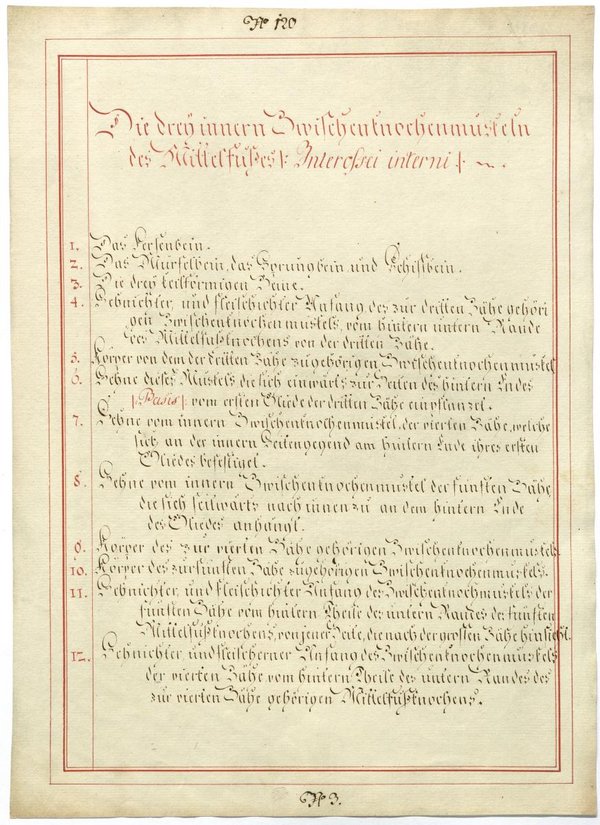 No 120
Die drey innern Zwischenknochenmuskeln
des Mittelfußes |: Interossei interni :| ~.
1. Das Fersenbein.
2. Das Würfelbein, das Sprungbein und Schifbein.
3. Die drey keilförmigen Beine.
4. Sehnichter, und fleischichter Anfang des zur dritten Zähe gehöri
gen Zwischenknochenmuskels, vom hintern untern Rande
des Mittelfußknochens von der dritten Zähe.
5. Körper von dem der dritten Zähe zugehörigen Zwischenknochenmuskel
6. Sehne dieses Muskels die sich einwärts zur Seiten des hintern Endes
|: Basis :| vom ersten Gliede der dritten Zähe einpflanzet.
7. Sehne vom innern Zwischenknochenmuskel, der vierten Zähe, welche
sich an der innern Seitengegend am hintern Ende ihres ersten
Gliedes befestiget.
8. Sehne vom innern Zwischenknochenmuskel der fünften Zähe
die sich seitwärts nach innen zu an dem hintern Ende
des Gliedes anhängt.
9. Körper des zur vierten Zähe gehörigen Zwischenknochenmuskels.
10. Körper des zur fünften Zähe zugehörigen Zwischenknochenmuskels.
11. Sehnichter, und fleischichter Anfang des Zwischenknochenmuskels der
fünften Zähe vom hintern Theile des untern Randes des fünften
Mittelfußknochens, von jener Seite, die nach der grossen Zähe hinsieht.
12. Sehnichter und fleischerner Anfang des Zwischenknochenmuskels
der vierten Zähe vom hintern Theile des untern Randes des
zur vierten Zähe gehörigen Mittelfußknochens.
No 3.